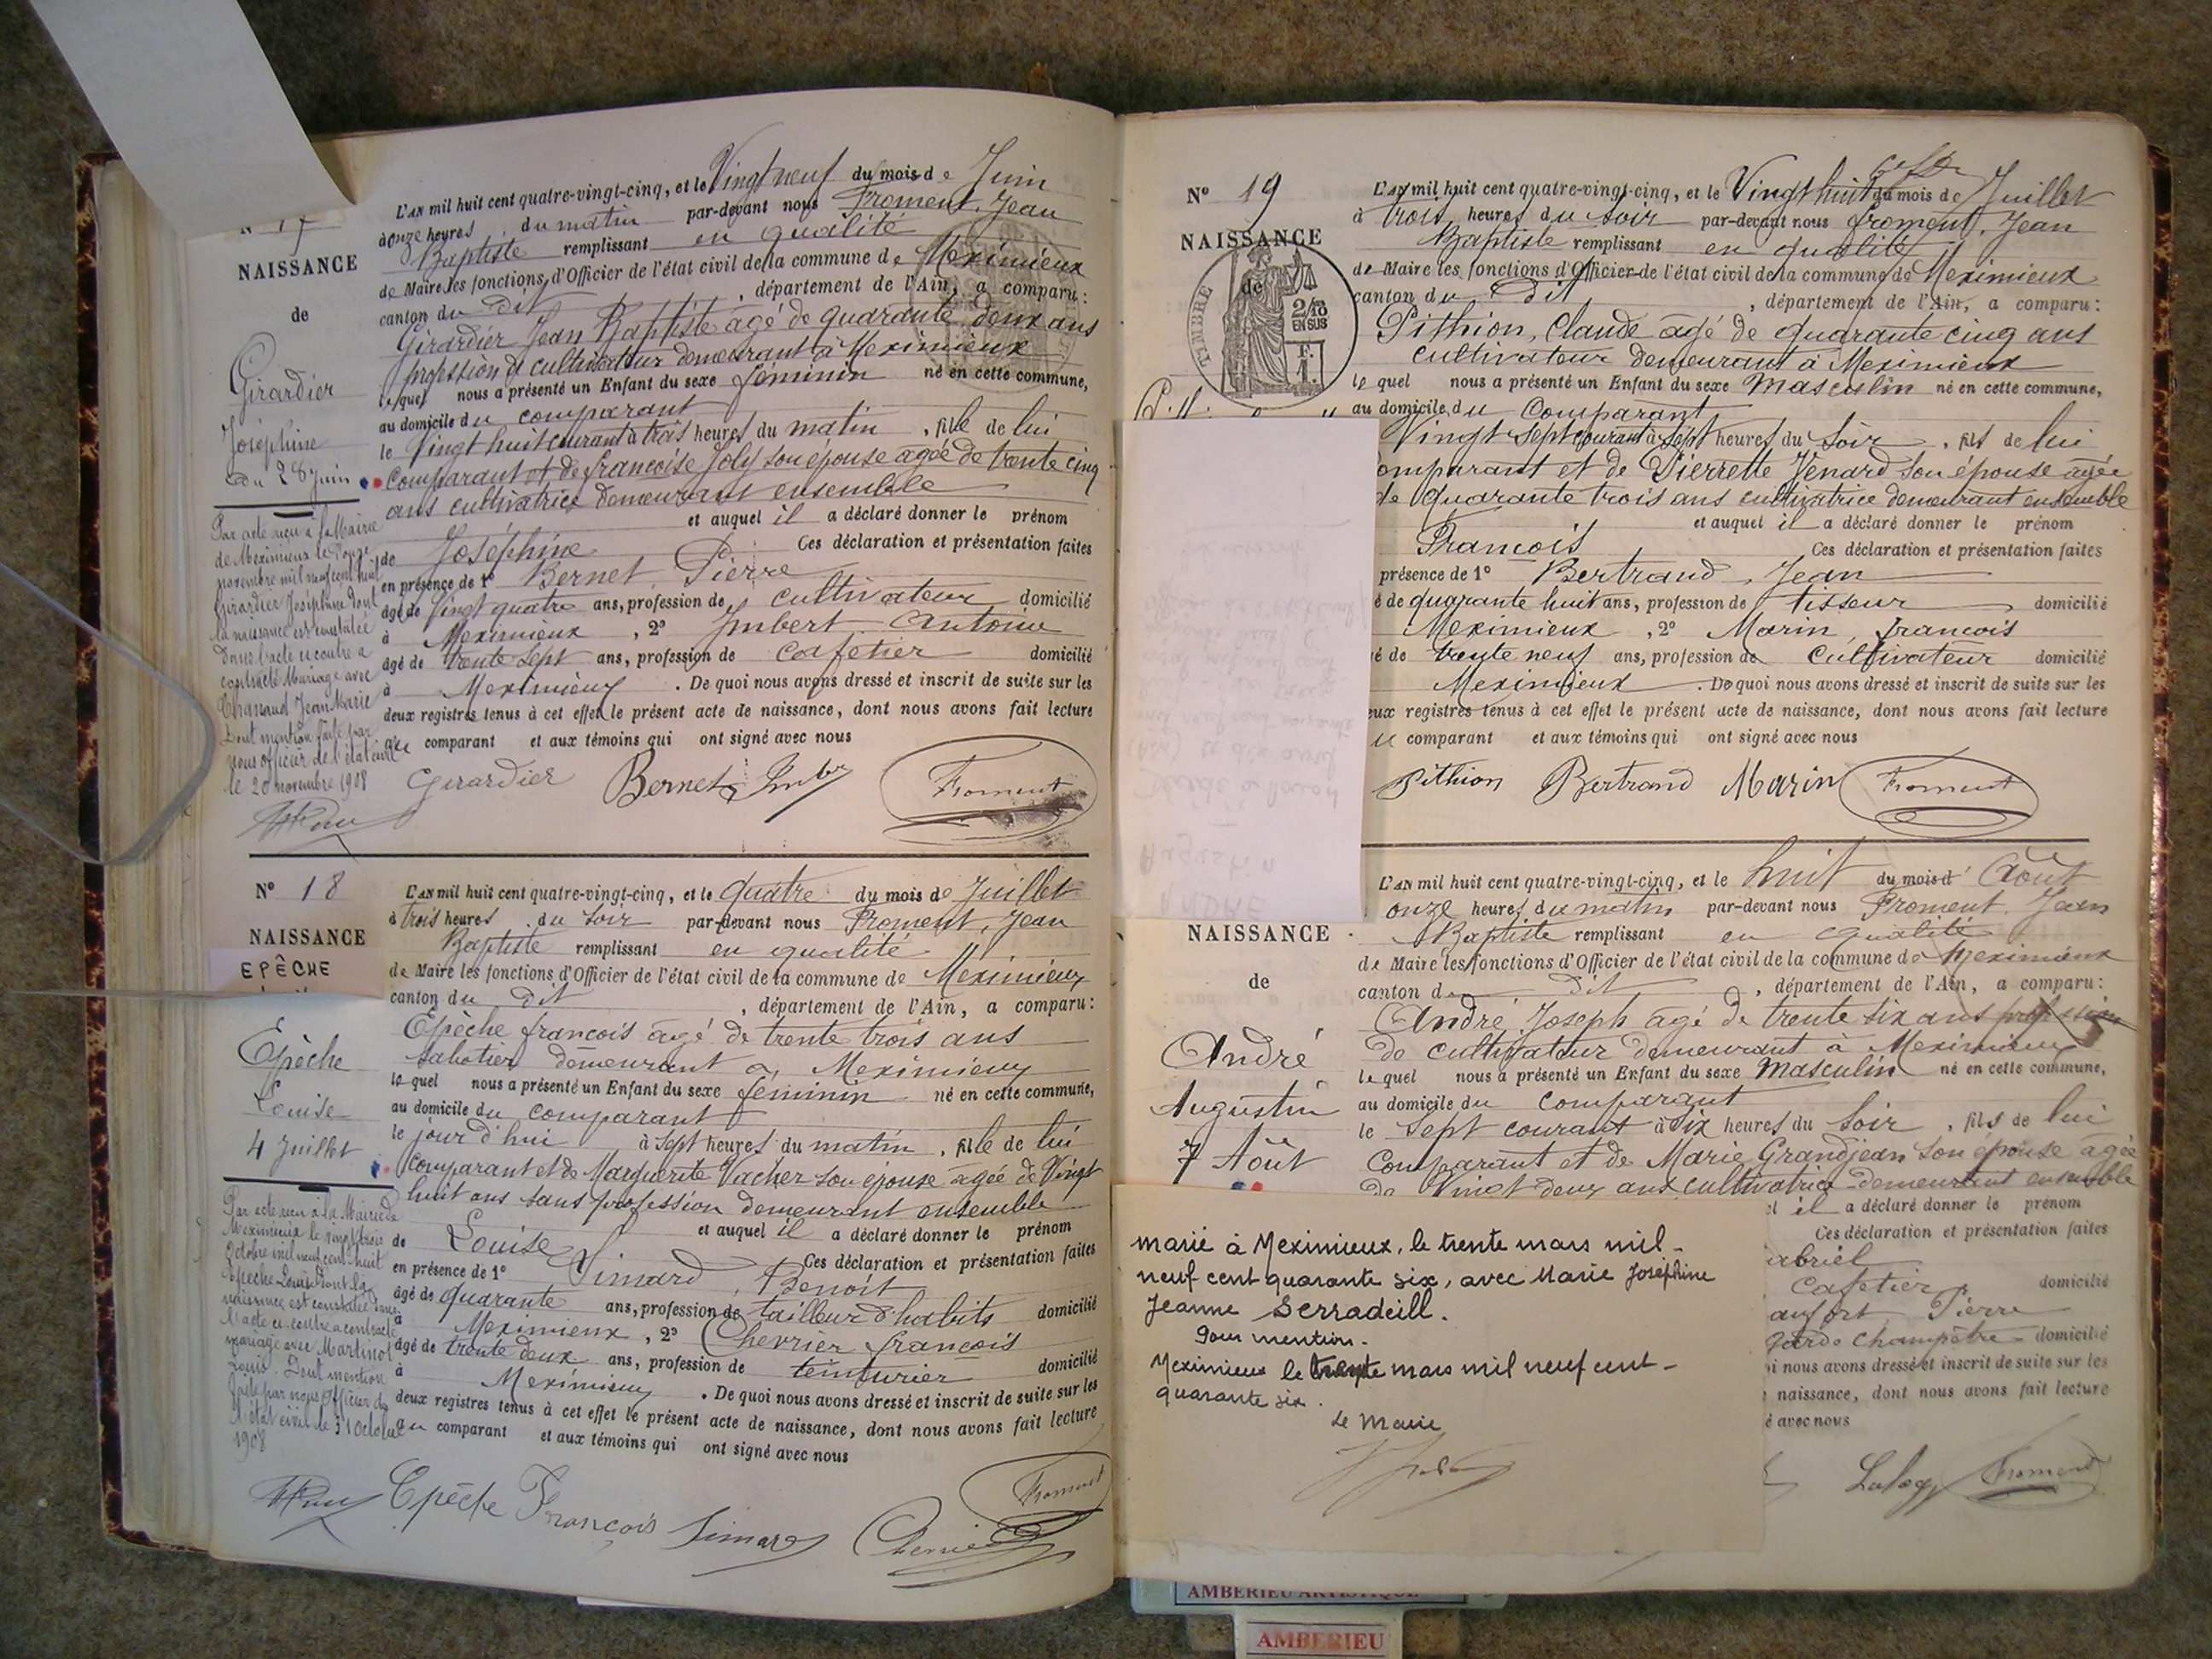 17
NAISSANCE
de
Girardier
Joséphine
du 28 Juin
L'AN mil huit cent quatre-vingt-cinq, et le Vingt neuf du mois de Juin
à onze heures du matin par-devant nous Froment, Jean
Baptiste remplissant en qualité
de Maire les fonctions d'Officier de l'état civil de la commune de Meximieux
canton du dit, département de l'Ain, a comparu:
Girardier Jean Baptiste agé de quarante deux ans
profession de cultivateur demeurant à Meximieux
lequel nous a présenté un Enfant du sexe féminin né en cette commune,
au domicile du comparant
le Vingt huit courant à trois heures du matin, fille de lui
comparant et de francoise Joly son épouse agée de trente cinq
ans cultivatrice demeurant ensemble
et auquel il a déclaré donner le prénom
de Joséphine Ces déclaration et présentation faites
en présence de 1° Bernet, Pierre
âgé de Vingt quatre ans, profession de cultivateur domicilié
à Meximieux, 2° Imbert Antoine
âgé de trente sept ans, profession de cafetier domicilié
à Meximieux. De quoi nous avons dressé et inscrit de suite sur les
deux registres tenus à cet effet le présent acte de naissance, dont nous avons fait lecture
au comparant et aux témoins qui ont signé avec nous
Girardier Bernet Froment
Par acte reçu à la Mairie
de Meximieux le Douze
novembre mil neuf cent huit
Girardier Joséphine dont
la naissance est constatée
dans l'acte ci contre a
contracté Mariage avec
Chanaud Jean Marie
Dont mention faite par
nous officier de l'état civil
le 20 novembre 1908
N° 18
NAISSANCE
EPÊCHE
Epèche
Louise
4 Juillet
L'AN mil huit cent quatre-vingt-cinq, et le quatre du mois de Juillet
à trois heures du soir par-devant nous Froment, Jean
Baptiste remplissant en qualité
de Maire les fonctions d'Officier de l'état civil de la commune de Meximieux
canton du dit, département de l'Ain, a comparu:
Epèche francois agé de trente trois ans
sabotier demeurant a Meximieux
lequel nous a présenté un Enfant du sexe féminin né en cette commune,
au domicile du comparant
le jour d'hui à sept heures du matin, fille de lui
comparant et de Marguerite Vacher son épouse agée de Vingt
huit ans sans profession demeurant ensemble
et auquel il a déclaré donner le prénom
de Louise Ces déclaration et présentation faites
en présence de 1° Simard, Benoit
âgé de quarante ans, profession de tailleur d'habits domicilié
à Meximieux, 2° Chevrier francois
âgé de trente deux ans, profession de teinturier domicilié
à Meximieux. De quoi nous avons dressé et inscrit de suite sur les
deux registres tenus à cet effet le présent acte de naissance, dont nous avons fait lecture
au comparant et aux témoins qui ont signé avec nous
Epèche François Simard Froment
Par acte reçu à la Mairie de
Meximieux le vingt trois
Octobre mil neuf cent huit
Epèche Louise dont la
naissance est constatée dans
l'acte ci-contre a contracté
mariage avec Martinot
Louis. Dont mention
faite par nous Officier de
l'état civil le 31 Octobre
1908
N° 19
NAISSANCE
de
TIMBRE
2/10
EN SUS
F.
1.
L'AN mil huit cent quatre-vingt-cinq, et le Vingt huit du mois de Juillet
à trois heures du soir par-devant nous froment, Jean
Baptiste remplissant en qualité
de Maire les fonctions d'Officier de l'état civil de la commune de Meximieux
canton du dit, département de l'Ain, a comparu:
Pithion, Claude agé de quarante cinq ans
cultivateur demeurant à Meximieux
lequel nous a présenté un Enfant du sexe masculin né en cette commune,
au domicile du comparant
Vingt sept courant à sept heures du soir, fils de lui
comparant et de Pierrette Venard son épouse agée
de quarante trois ans cultivatrice demeurant ensemble
et auquel il a déclaré donner le prénom
François Ces déclaration et présentation faites
présence de 1° Bertrand, Jean
é de quarante huit ans, profession de tisseur domicilié
Meximieux, 2° Marin, francois
é de trente neuf ans, profession de cultivateur domicilié
Meximieux. De quoi nous avons dressé et inscrit de suite sur les
eux registres tenus à cet effet le présent acte de naissance, dont nous avons fait lecture
au comparant et aux témoins qui ont signé avec nous
Pithion Bertrand Marin Froment
NAISSANCE
de
André
Augustin
7 Août
L'AN mil huit cent quatre-vingt-cinq, et le huit du mois d'Août
onze heures du matin par-devant nous Froment, Jean
Baptiste remplissant en qualité
de Maire les fonctions d'Officier de l'état civil de la commune de Meximieux
canton du dit, département de l'Ain, a comparu:
André Joseph agé de trente six ans profession
de cultivateur demeurant à Meximieux
lequel nous a présenté un Enfant du sexe masculin né en cette commune,
au domicile du comparant
le sept courant à six heures du soir, fils de lui
comparant et de Marie Grandjean son épouse agée
de Vingt deux ans cultivatrice demeurant ensemble
il a déclaré donner le prénom
Ces déclaration et présentation faites
abriel
cafetier domicilié
aufort, Pierre
garde champêtre domicilié
oi nous avons dressé et inscrit de suite sur les
naissance, dont nous avons fait lecture
é avec nous
Froment
marié à Meximieux, le trente mars mil
neuf cent quarante six, avec Marie Joséphine
Jeanne Serradeill.
Pour mention.
Meximieux le trente mars mil neuf cent
quarante six.
Le Maire
AMBERIEU ARTISTIQUE
AMBERIEU